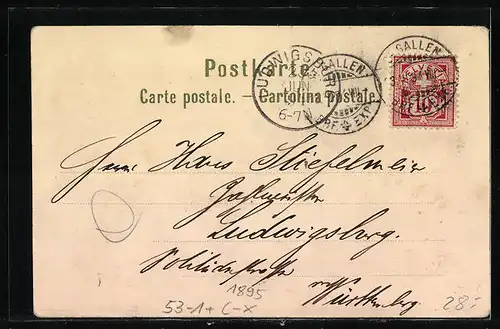 Postkarte.
Carte postale. — Cartolina postale.
LUDWIGSB
JUN
6-7N
GALLEN
BRF. EXP.
GALLEN
10
Herrn Hans Stiefelmeier
Zahlmeister
Ludwigsburg.
Solitudestrasse
Württemberg
1895
53-1+ C-X
28.-